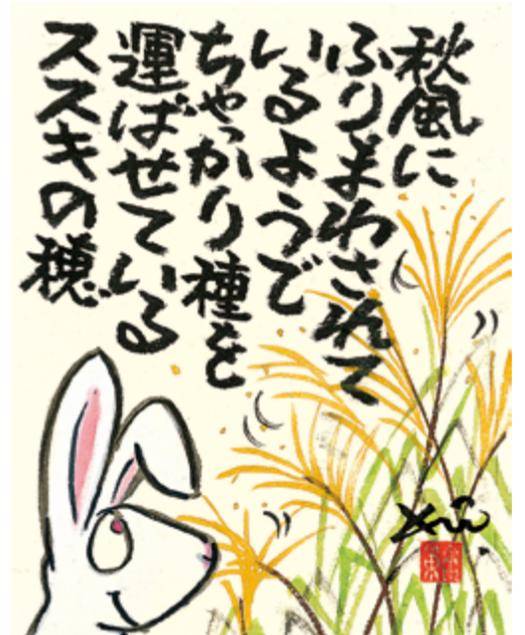 秋風に
ふりまわされて
いるようで
ちゃっかり種を
運ばせている
ススキの穂